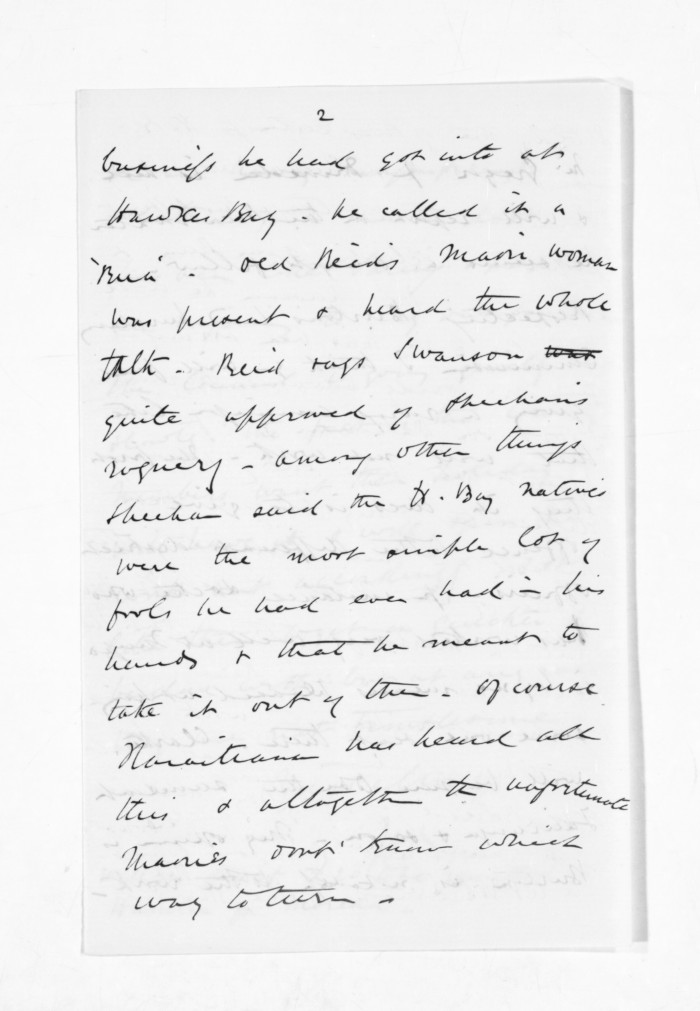 2
business he had got into at
Hawkes Bay - he called it a
- old Reids Maori woman
was present & heard the whole
talk - Reid says Swanson was
quite approved of Sheehan's
roguery - among other things
Sheehan said the H. Bay natives
were the most simple lot of
fools he had ever had in his
hands & that he meant to
take it out of them - of course
Karaitiana has heard all
this & altogether the unfortunate
Maories dont know which
way to turn -